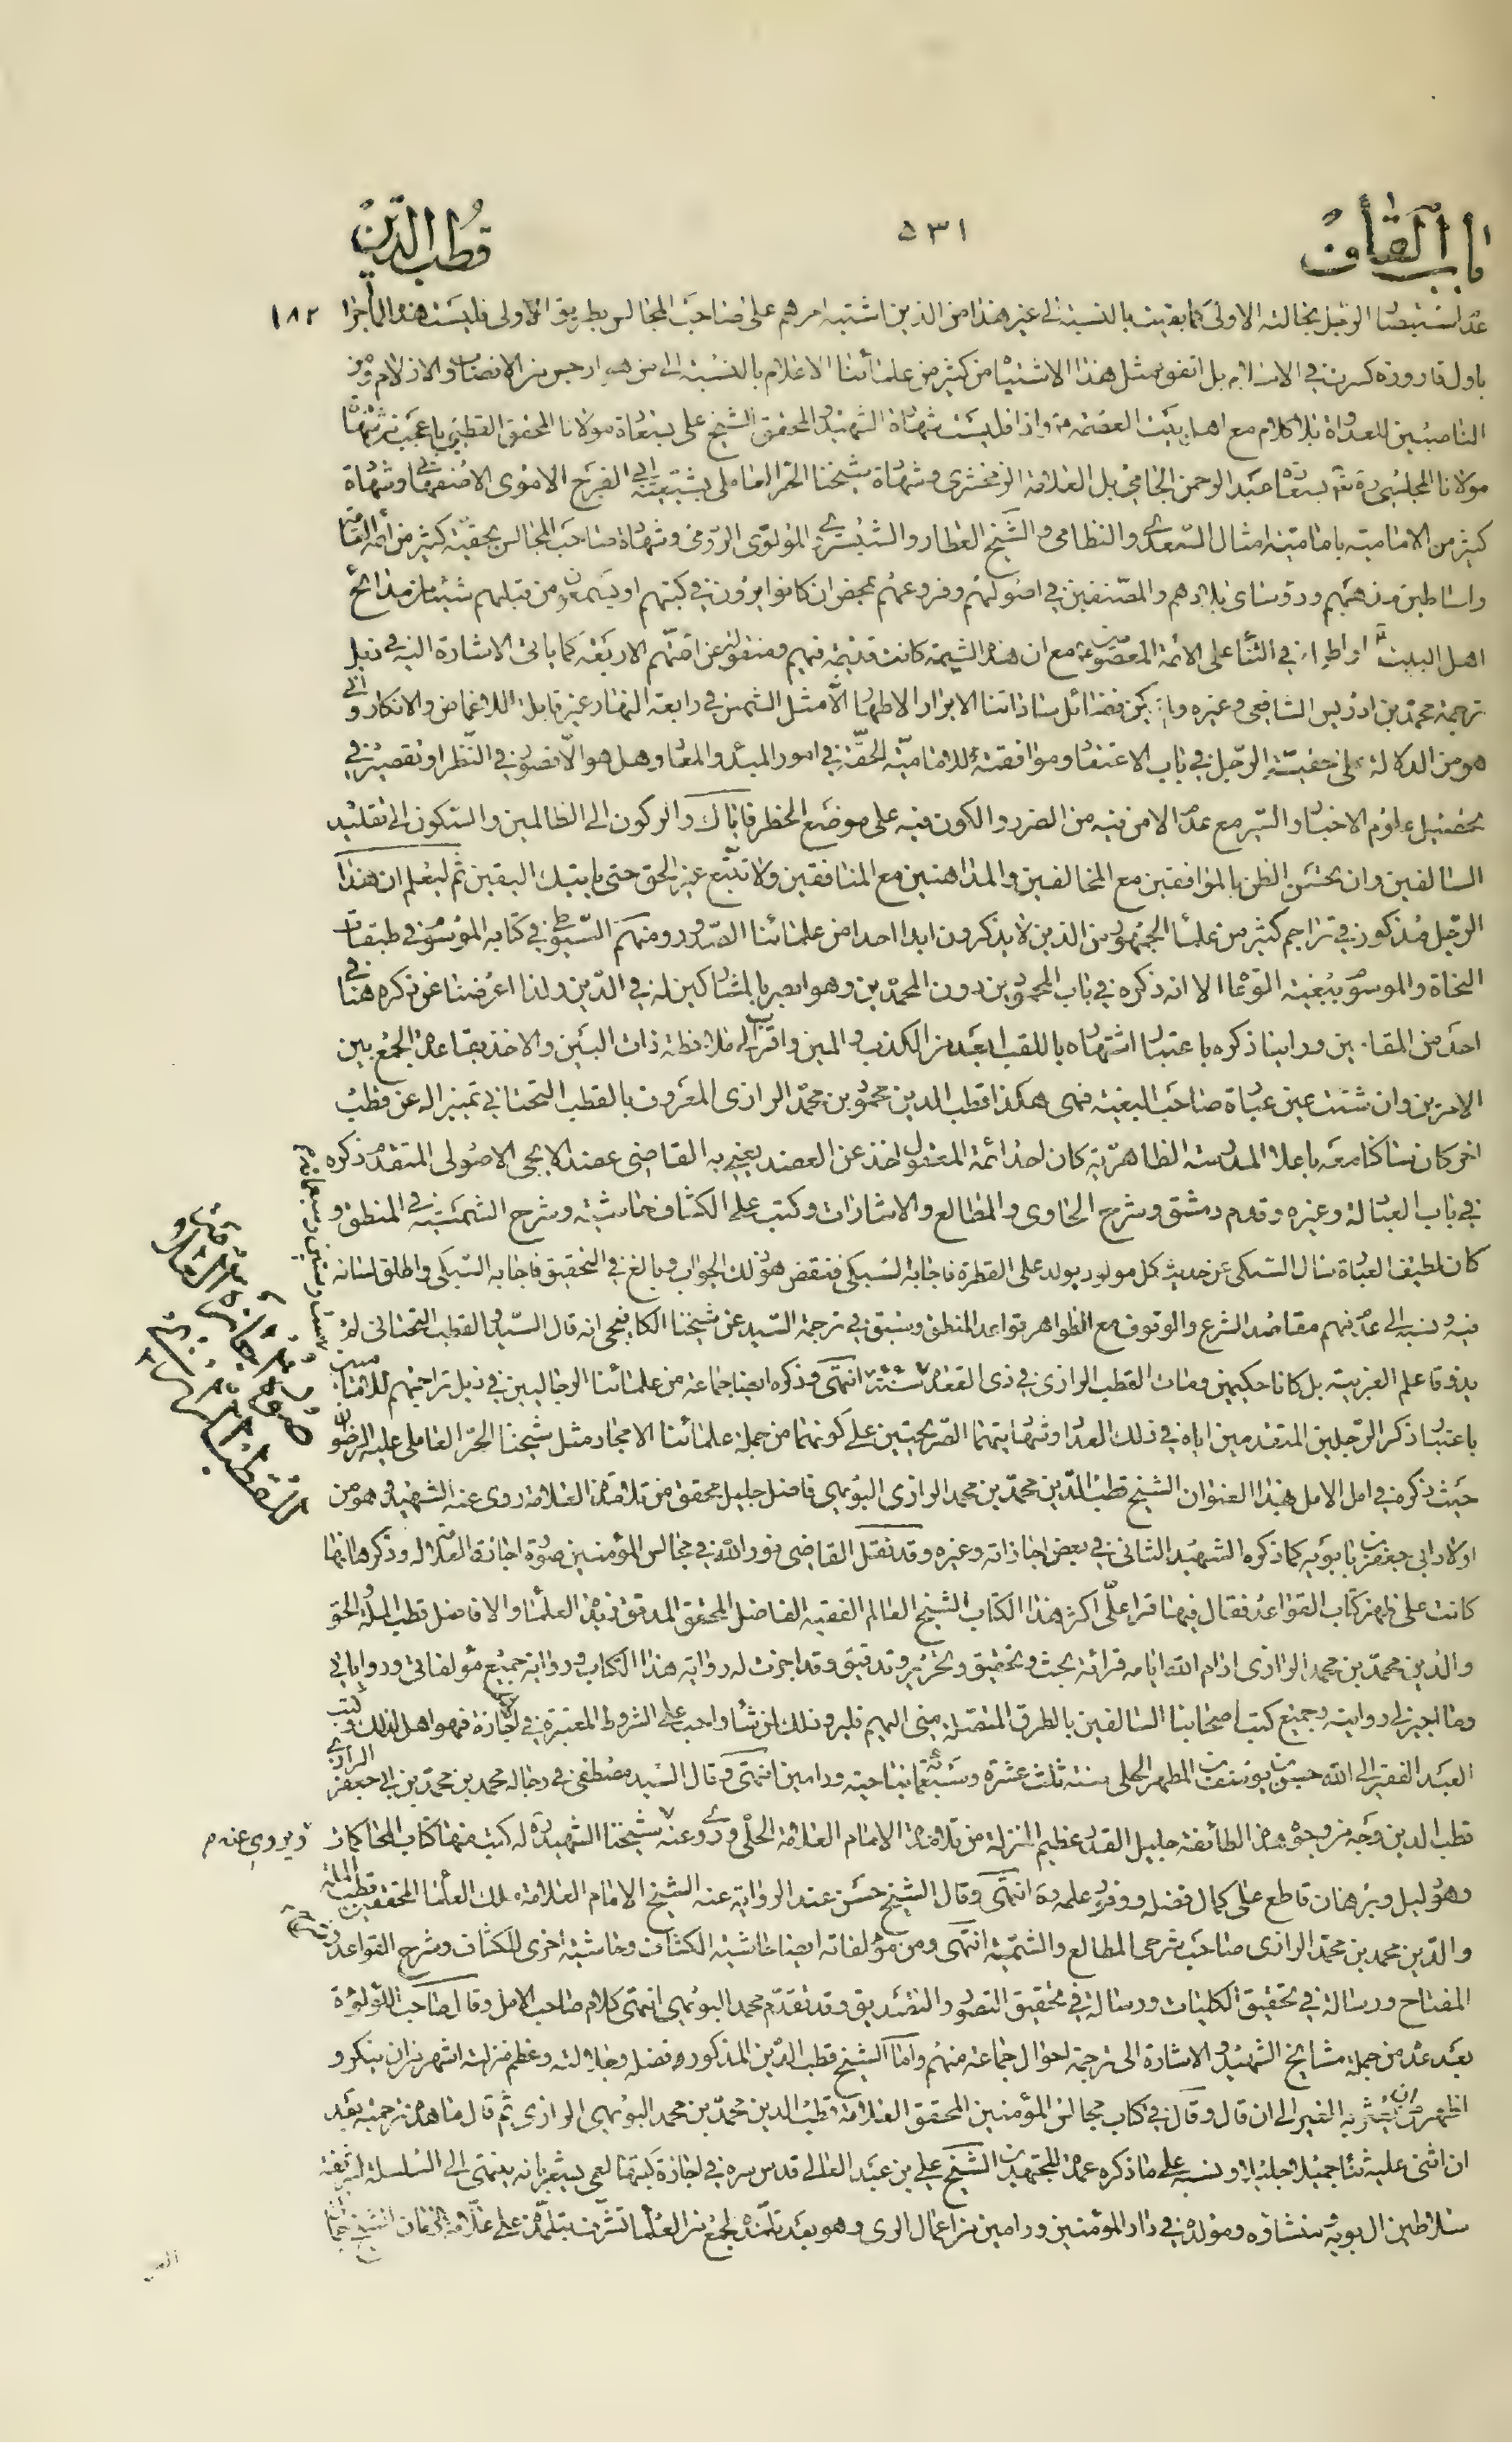 باب القاف
٥٣١
قطب الدين
١٨٢
عدم استبصار الرجل بحالته الاولى كما بقيت بالنسبة الى غير هذا من الذين اشتبه امرهم على صاحب المجالس بطريق الاولى فليست هذه الماجرا
باول قارورة كسرت في الاسلام بل اتفق مثل هذا الاشتباه من كثير من علمائنا الاعلام بالنسبة الى من هو ارجس من الانصاب والازلام ومن
الناصبين للعداوة بلا كلام مع اهل بيت العصمة واذا فليست شهادة الشهيد والمحقق الشيخ على بسعادة مولانا المحقق القطبي باعجب من شهادة
مولانا المجلسي ره بسعادة عبد الرحمن الجامي بل العلامة الزمخشري وشهادة شيخنا الحر العاملي بشيعية ابي الفرج الاموي الاصفهاني وشهادة
كثير من الامامية بامامية امثال السعدي والنظامي والشيخ العطار والشبستري المولوي الرومي وشهادة صاحب المجالس بحقية كثير من أئمة
واساطين مذهبهم ورؤساى بلادهم والمصنفين في اصولهم وفروعهم بمحض ان كانوا يرون في كتبهم او يسمعون من قبلهم شيئا من مدائح
اهل البيت او اطراء في الثناء على الائمة المعصومين مع ان هذه الشيمة كانت قديمة فيهم ومنقولة عن ائمتهم الاربعة كما ياتى الاشارة اليه في ذيل
ترجمة محمد بن ادريس الشافعي وغيره ولم يكن فضائل ساداتنا الابرار الاطهار الا مثل الشمس في رابعة النهار غير قابلة للاغماض والانكار وانى
هو من الدلالة على حقية الرجل في باب الاعتقاد وموافقته للامامية الحقة في امور المبدء والمعاد وهل هو الا قصور في النظر او تقصير في
تحصيل علوم الاخبار والسير مع عدم الامن فيه من الضرر والكون فيه على موضع الخطر فاياك والركون الى الظالمين والسكون الى تقليد
السالفين وان يحسن الظن بالموافقين مع المخالفين والمداهنين مع المنافقين ولا تتبع غير الحق حتى ياتيك اليقين ثم ليعلم ان هذا
الرجل مذكور في تراجم كثير من علماء الجمهور من الذين لا يذكرون ابدا احدا من علمائنا الصدور ومنهم السيوطي في كتابه الموسوم في طبقات
النحاة والموسوم ببغية الوعاة الا انه ذكره في باب المحمودين دون المحمدين وهو ابصر بالمشاكين له في الدين ولذا اعرضنا عن ذكره هنا في
احد من المقامين ورأينا ذكره باعتبار اشتهاره باللقب ابعد من الكذب والمين واقرب الى ملاحظة ذات البين والاخذ بقاعدة الجمع بين
الامرين وان شئت عين عبارة صاحب البغية فهى هكذا قطب الدين محمود بن محمد الرازى المعروف بالقطب التحتاني تميزا له عن قطب
اخر كان ساكنا معه باعلى المدرسة الظاهرية كان احد ائمة المعقول اخذ عن العضد يعني به القاضي عضد الايجي الاصولى المتقدم ذكره
في باب العبادلة وغيره وقدم دمشق وشرح الحاوى والمطالع والاشارات وكتب على الكشاف حاشية وشرح الشمسية في المنطق و
كان لطيف العبارة سال السبكي عن حديث كل مولود يولد على الفطرة فاجابه السبكي فنقض هو ذلك الجواب وبالغ في التحقيق فاجابه السبكي واطلق لسانه
فيه ونسبه الى عدم فهم مقاصد الشرع والوقوف مع الظواهر قواعد المنطق وسبق في ترجمة السيد عن شيخنا الكافيجي انه قال السيد والقطب التحتانى لم
يذوقا علم العربية بل كانا حكيمين ومات القطب الرازى في ذى القعدة سنة انتهى وذكره ايضا جماعة من علمائنا الرجاليين في ذيل تراجمهم للامامية
باعتبار ذكر الرجلين المتقدمين اياه في ذلك العداد وشهادتهما الصريحتين على كونهما من جملة علمائنا الامجاد مثل شيخنا الحر العاملى عليه الرضوان
حيث ذكره في امل الامل بهذا العنوان الشيخ قطب الدين محمد بن محمد الرازى البويهى فاضل جليل محقق من تلامذة العلامة روى عنه الشهيد وهو من
اولاد ابى جعفر بن بابويه كما ذكره الشهيد الثانى في بعض اجازاته وغيره وقد نقل القاضى نور الله في مجالس المؤمنين صورة اجازة العلامة له وذكر انها
كانت على ظهر كتاب القواعد فقال فيها قرا علّى اكثر هذا الكتاب الشيخ العالم الفقيه الفاضل المحقق المدقق زبدة العلماء والافاضل قطب الملة والحق
والدين محمد بن محمد الرازى ادام الله ايامه قرائة بحث وتحقيق وتحرير وتدقيق وقد اجزت له رواية هذا الكتاب ورواية جميع مؤلفاتى ورواياتى
وما اجيز لى روايته وجميع كتب اصحابنا السالفين بالطرق المتصلة منى اليهم فليرو ذلك لمن شاء واحب على الشروط المعتبرة في الاجازة فهو اهل لذلك وكتب
العبد الفقير الى الله حسن بن يوسف بن المطهر الحلى سنة ثلث عشرة وسبعمائة بناحية ورامين انتهى وقال السيد مصطفى في رجاله محمد بن محمد بن ابى جعفر الرازى
قطب الدين وجه من وجوه هذه الطائفة جليل القدر عظيم المنزلة من تلامذة الامام العلامة الحلى وروى عنه شيخنا الشهيد له كتب منها كتاب المحاكمات
ويروى عنه م
وهو دليل وبرهان قاطع على كمال فضله ووفور علمه ره انتهى وقال الشيخ حسن عند الرواية عنه الشيخ الامام العلامة ملك العلماء المحققين قطب الملة
والدين محمد بن محمد الرازى صاحب شرحى المطالع والشمسية انتهى ومن مؤلفاته ايضا حاشية الكشاف وحاشية اخرى للكشاف وشرح القواعد وشرح
المفتاح ورسالة في تحقيق الكليات ورسالة في تحقيق التصور والتصديق وقد تقدم محمد البويهى انتهى كلام صاحب الامل وقال صاحب اللؤلؤة
بعد عده من جملة مشايخ الشهيد والاشارة الى ترجمة احوال جماعة منهم واما الشيخ قطب الدين المذكور وفضله وجلالته وعظم منزلته اشهر من ان ينكر و
اظهر من ان يعثر به الغير الى ان قال وقال في كتاب مجالس المؤمنين المحقق العلامة قطب الدين محمد بن محمد البويهى الرازى ثم قال ما هذه ترجمته بعد
ان اثنى عليه ثناء جميلا جليلا ونسبه على ما ذكره عمدة المجتهدين الشيخ على بن عبد العالى قدس سره في اجازة كتبها لعمى يشعر بانه ينتمى الى السلسلة الشريفة
سلاطين ال بويه منشاؤه ومولده في دار المؤمنين ورامين من اعمال الرى وهو بعد تلمذه لجمع من العلماء تشرف بتلمذه على علامة الزمان الشيخ جمال